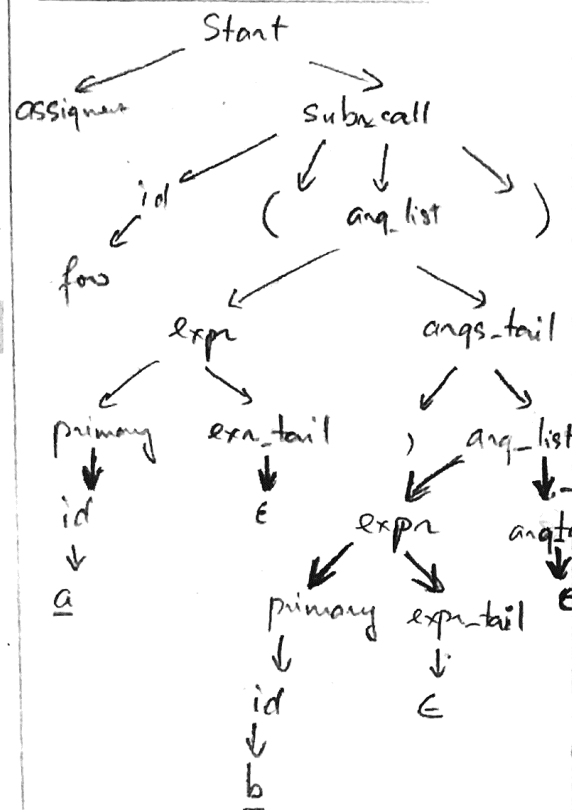 Start
assignment subr_call
id ( arg_list )
foo
expr args_tail
primary expr_tail , arg_list
id ϵ expr
a primary expr_tail ϵ
id ϵ
b